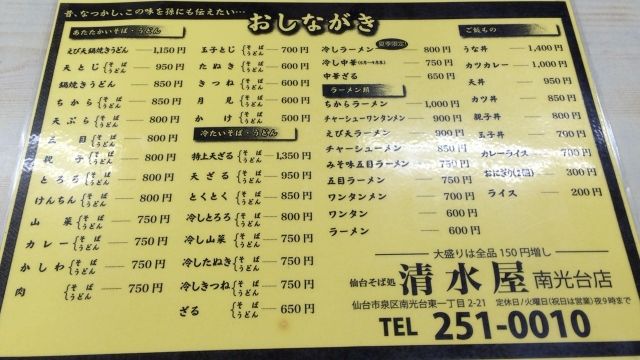 昔、なつかし、この味を孫にも伝えたい…
おしながき
あたたかいそば・うどん
えび天鍋焼きうどん 1,150円
天とじ そば うどん 950円
鍋焼きうどん 850円
ちから そば うどん 850円
天ぷら そば うどん 800円
五目 そば うどん 800円
親子 そば うどん 800円
とろろ そば うどん 800円
けんちん そば うどん 800円
山菜 そば うどん 750円
カレー そば うどん 750円
かしわ そば うどん 750円
肉 そば うどん 750円
玉子とじ そば うどん 700円
たぬき そば うどん 600円
きつね そば うどん 600円
月見 そば うどん 600円
かけ そば うどん 500円
冷たいそば・うどん
特上天ざる そば うどん 1,350円
天ざる そば うどん 950円
とくとく そば うどん 850円
冷しとろろ そば うどん 800円
冷し山菜 そば うどん 750円
冷したぬき そば うどん 750円
冷しきつね そば うどん 750円
ざる そば うどん 650円
夏季限定
冷しラーメン 800円
冷し中華 750円
中華ざる 650円
ラーメン類
ちからラーメン 1,000円
チャーシューワンタンメン 900円
えび天ラーメン 900円
チャーシューメン 850円
みそ味五目ラーメン 850円
五目ラーメン 750円
ワンタンメン 700円
ワンタン 600円
ラーメン 600円
ご飯もの
うな丼 1,400円
カツカレー 1,000円
天丼 950円
カツ丼 850円
親子丼 800円
玉子丼 790円
カレーライス 700円
おにぎり 300円
ライス 200円
大盛りは全品150円増し
仙台そば処 清水屋 南光台店
仙台市泉区南光台東一丁目2-21 定休日/火曜日(祝日は営業)夜9時まで
TEL 251-0010